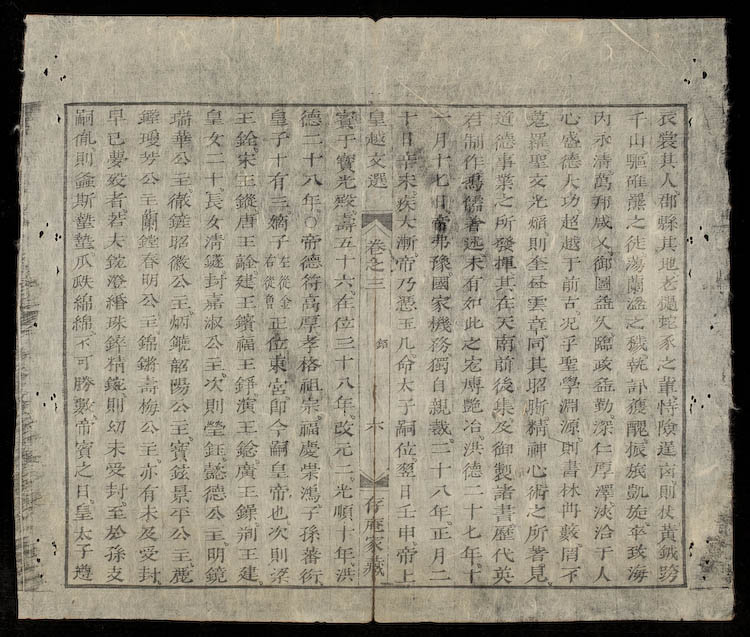 衣裳其人郡縣其地老撾蛇豕之輩恃險逞則仗黃鉞跨
千山驅之徒蕩蘭盜之穢執訊獲醜振旅凱旋卒致海
內永清萬邦咸乂御國益久臨政益勤深仁厚澤浹洽于人
心盛德大功超越于前古况乎聖學淵源則書林門藪罔不
蒐羅聖文光焰則奎雲章同其昭晣精神心術之所著見
道德事業之所發揮其在天南前後集及御製諸書歷代英
君制作馮儒著述未有如此之宏博艶冶洪德二十七年十
一月十七日帝弗豫國家機務獨自親裁二十八年正月二
十日辛未疾大漸帝乃憑玉几命太子嗣位翌日壬申帝上
皇越文選 卷之三 六 存庵家藏
賓于寶光殿壽五十六在位三十八年改元二光順十年洪
德二十八年○帝德符高厚孝格祖宗福慶榮鴻子孫蕃衍
皇子十有三嫡子左從金右從正位東宮即今嗣皇帝也次則梁
王銓宋王鏦唐王建王鑌福王錚演王鏓廣王鐰王建
皇女二十長女清鐩封嘉淑公主次則瑩鈺懿德公主明鏡
瑞華公主徹昭徽公主炳鐃韶陽公主寶鉉景平公主麗
鏵瓊芳公主蘭鏜春明公主錦鏘壽梅公主亦有未及受封
早已歿者若夫錠澄緍珠精則幼未受封至於孫支
嗣胤則螽斯蟄蟄瓜瓞綿綿不可勝數帝賓之日皇太子遵